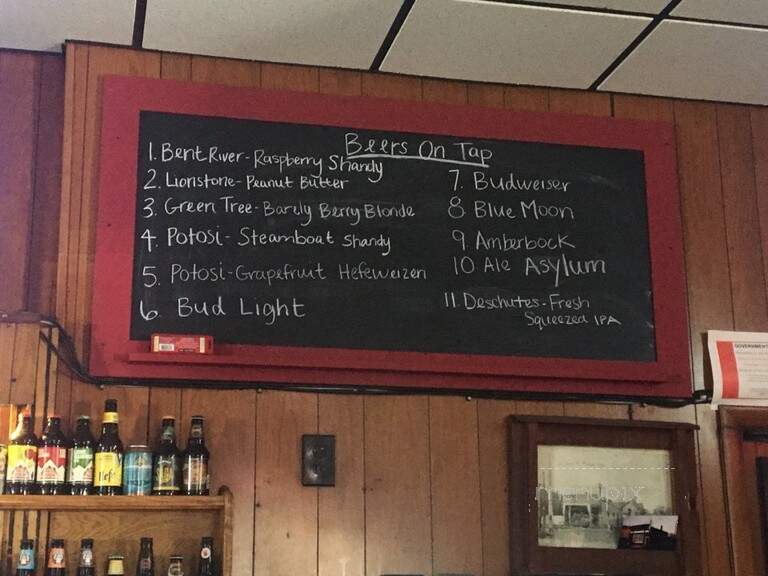 Beers On Tap
1. Bent River - Raspberry Shandy
2. Lionstone - Peanut Butter
3. Green Tree - Barely Berry Blonde
4. Potosi - Steamboat Shandy
5. Potosi - Grapefruit Hefeweizen
6 Bud Light
7. Budweiser
8 Blue Moon
9. Amberbock
10 Ale Asylum
11. Deschutes - Fresh
Squeezed IPA
GOVERNMENT
Hef
menupix